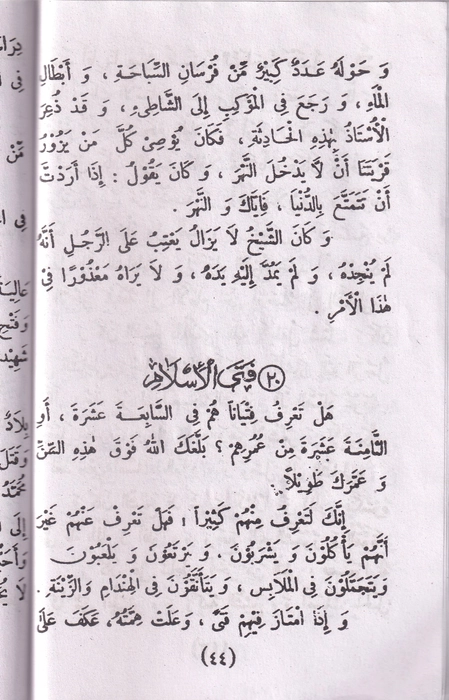 وَ حَوْلَهُ عَدَدٌ كَبِيْرٌ مِّنْ فُرْسَانِ السِّبَاحَةِ ، وَ أَبْطَالِ
الْمَاءِ ، وَ رَجَعَ فِى الْمَوْكِبِ إِلَى الشَّاطِىءِ ، وَ قَدْ ذُعِرَ
الْأُسْتَاذُ بِهٰذِهِ الْحَادِثَةِ ، فَكَانَ يُوْصِىْ كُلَّ مَنْ يَزُوْرُ
قَرْيَتَنَا أَنْ لَّا يَدْخُلَ النَّهْرَ ، وَ كَانَ يَقُوْلُ : إِذَا أَرَدْتَّ
أَنْ تَتَمَتَّعَ بِالدُّنْيَا ، فَإِيَّاكَ وَ النَّهْرَ .
وَ كَانَ الشَّيْخُ لَا يَزَالُ يَعْتِبُ عَلَى الرَّجُلِ أَنَّهُ
لَمْ يُنْجِدْهُ ، وَ لَمْ يَمُدَّ إِلَيْهِ يَدَهُ ، وَ لَا يَرَاهُ مَعْذُوْرًا فِىْ
هٰذَا الْأَمْرِ .
(٢٠) فَتَى الْإِسْلَامِ
هَلْ تَعْرِفُ فِتْيَانًا هُمْ فِى السَّابِعَةَ عَشَرَةَ ، أَوِ
الثَّامِنَةَ عَشَرَةَ مِنْ عُمُرِهِمْ ؟ بَلَّغَكَ اللّٰهُ فَوْقَ هٰذِهِ السِّنِّ
وَ عَمَّرَكَ طَوِيْلًا .
إِنَّكَ لَتَعْرِفُ مِنْهُمْ كَثِيْرًا ! فَهَلْ تَعْرِفُ عَنْهُمْ غَيْرَ
أَنَّهُمْ يَأْكُلُوْنَ وَ يَشْرَبُوْنَ . وَ يَرْتَعُوْنَ وَ يَلْعَبُوْنَ
وَيَتَجَمَّلُوْنَ فِى الْمَلَابِسِ ، وَ يَتَأَنَّقُوْنَ فِى الْهِنْدَامِ وَالزِّيْنَةِ .
وَ إِذَا امْتَازَ فِيْهِمْ فَتًى ، وَعَلَتْ هِمَّتُهُ ، عَكَفَ عَلَى
(٤٤)